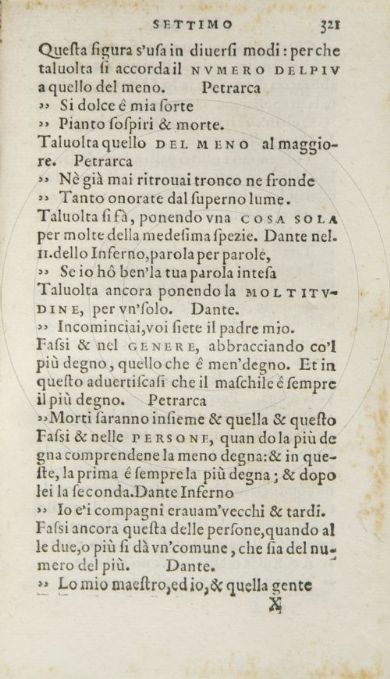 SETTIMO 321
Questa figura s'usa in diuersi modi: perche
taluolta si accorda il NVMERO DEL PIV
a quello del meno. Petrarca
,, Si dolce é mia sorte
,, Pianto sospiri & morte.
Taluolta quello DEL MENO al maggio-
re. Petrarca
,, Nè già mai ritrouai tronco ne fronde
,, Tanto onorate dal superno lume.
Taluolta si fà, ponendo vna COSA SOLA
per molte della medesima spezie. Dante nel-
II. dello Inferno, parola per parole,
,, Se io hô ben'la tua parola intesa
Taluolta ancora ponendo la MOLTITV-
DINE, per vn'solo. Dante.
,, Incominciai, voi siete il padre mio.
Fassi & nel GENERE, abbracciando co'l
più degno, quello che é men'degno. Et in
questo aduertiscasi che il maschile é sempre
il più degno. Petrarca
,, Morti saranno insieme & quella & questo
Fassi & nelle PERSONE, quan do la più de
gna comprendene la meno degna: & in que-
ste, la prima é sempre la più degna; & dopo
lei la seconda. Dante Inferno
,, Io e'i compagni erauam'vecchi & tardi.
Fassi ancora questa delle persone, quando al
le due, o più si dà vn'comune, che sia del nu-
mero del più. Dante.
,, Lo mio maestro, ed io, & quella gente
X